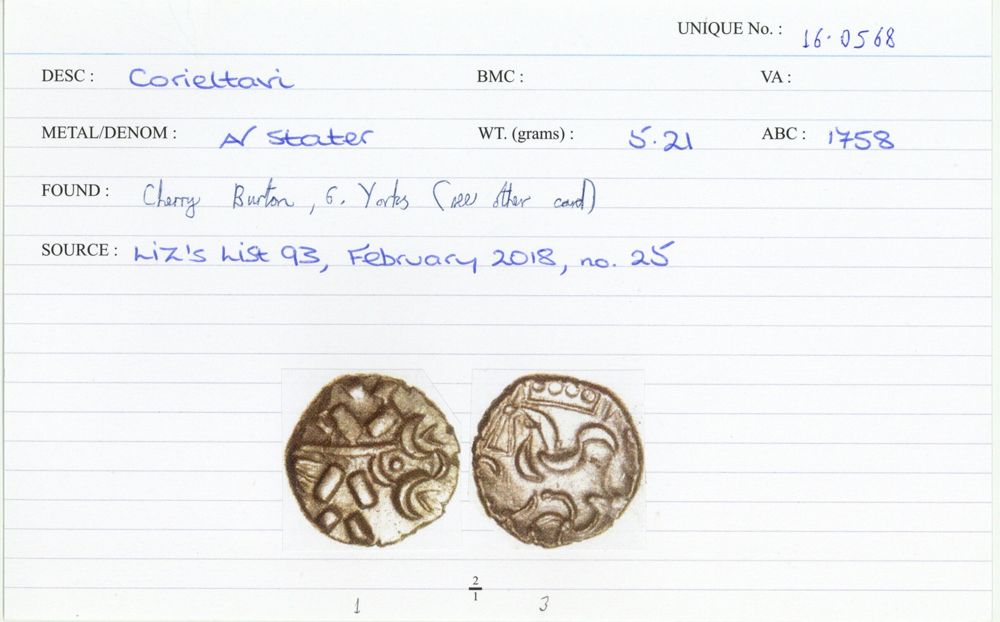 UNIQUE No. : 16.0568
DESC : Corieltavi BMC : VA :
METAL/DENOM : AV Stater WT. (grams) : 5.21 ABC : 1758
FOUND : Cherry Burton, E. Yorks (see other card)
SOURCE : Liz's List 93, February 2018, no. 25
2
1
1 3